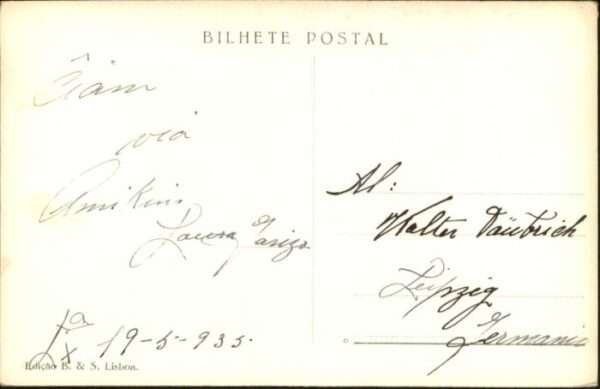 BILHETE POSTAL
Ĉiam
via
Amikino
Laura
Al:
Walter Däubrich
Leipzig
Germanio
19-5-935.
Edição B. & S. Lisboa.